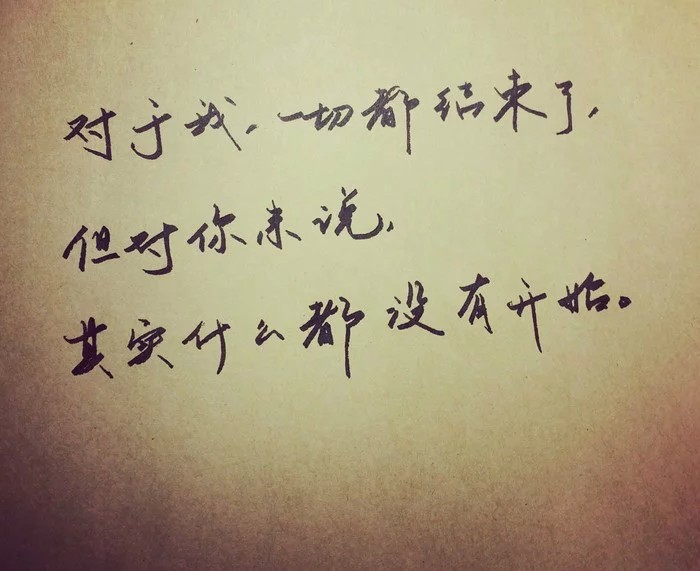 对于我，一切都结束了，
但对你来说，
其实什么都没有开始。